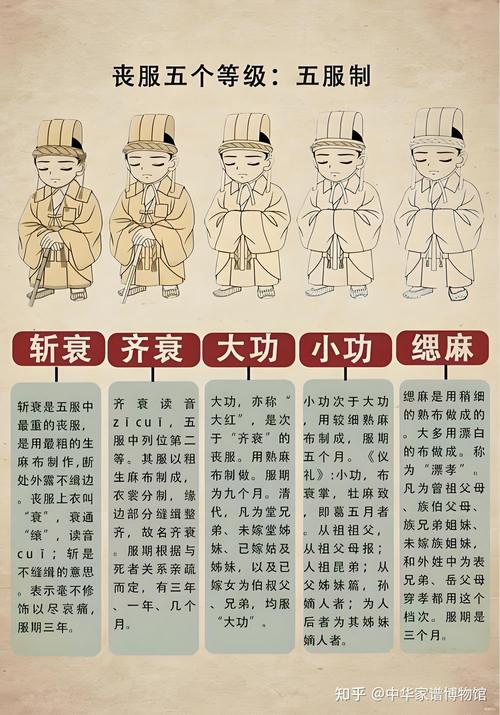 丧服五个等级：五服制
斩衰
齐衰
大功
小功
缌麻
斩衰是五服中
最重的丧服，
是用最粗的生
麻布制作，断
处外露不缉边
。丧服上衣叫
“衰”，衰通
“缞”，读音
cuī；斩是
不缝缉的意思
。表示毫不修
饰以尽哀痛，
服期三年。
齐衰读音
zīcuī，五
服中列位第二
等。其服以粗
生麻布制成，
衣裳分制，缘
边部分缝缉整
齐，故名齐衰
。服期根据与
死者关系亲疏
而定，有三年
、一年、几个
月。
大功，亦称“
大红”，是次
于“齐衰”的
丧服。用熟麻
布制做。服期
为九个月。清
代，凡为堂兄
弟、未嫁堂姊
妹、已嫁姑及
姊妹，以及已
嫁女为伯叔父
、兄弟，均服
“大功”。
小功次于大功
，用较细熟麻
布制成，服期
五个月。《仪
礼》:小功，布
衰掌，牡麻致
，即葛五月者
。从祖祖父，
从祖父母报；
从人祖昆弟；从
父姊妹篇，孙
嫡人者；为人
后者为其姊妹
嫡人者。
缌麻是用稍细
的熟布做成的
。大多用漂白
的布做成。称
为“漂孝”。
凡为曾祖父母
、族伯父母、
族兄弟姐妹、
未嫁族姐妹，
和外姓中为表
兄弟、岳父母
穿孝都用这个
档次。服期是
三个月。
知乎 @中华家谱博物馆